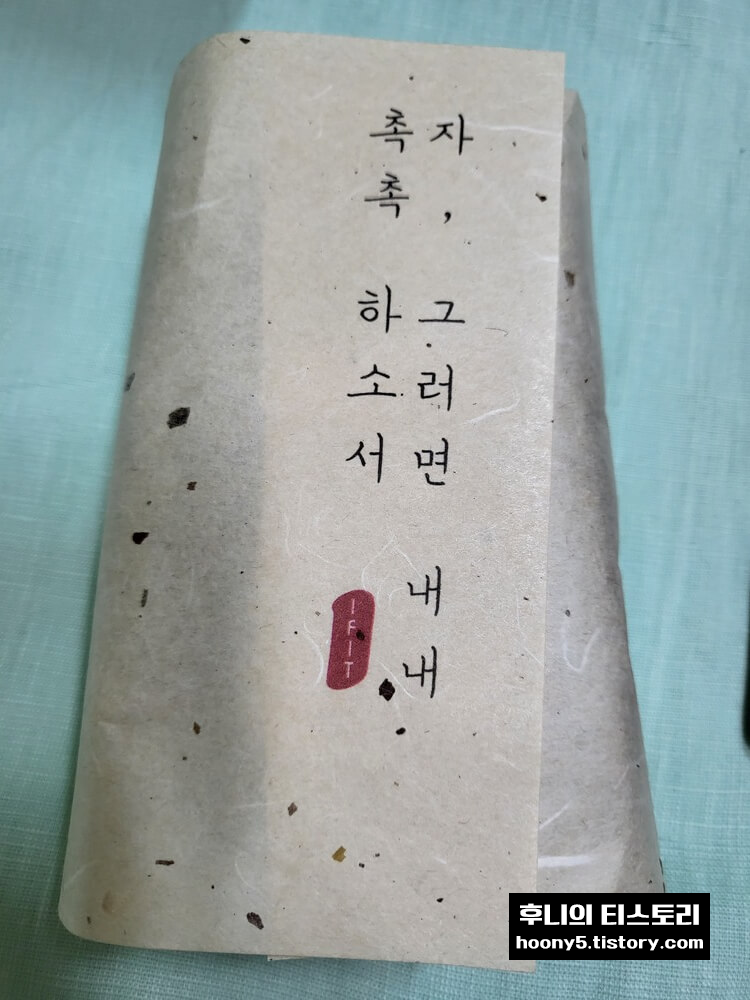 자, 그러면 내내
촉촉 하소서
IFIT
후니의 티스토리
hoony5.tistory.com